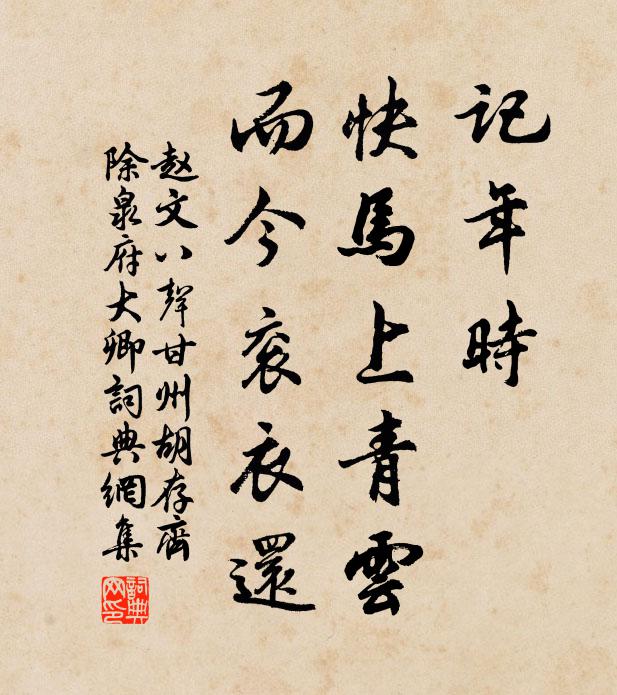 記年時
快馬上青雲
而今衮衣還
赵文八聲甘州胡存齊
除泉府大卿詞典網集
詞典
网印